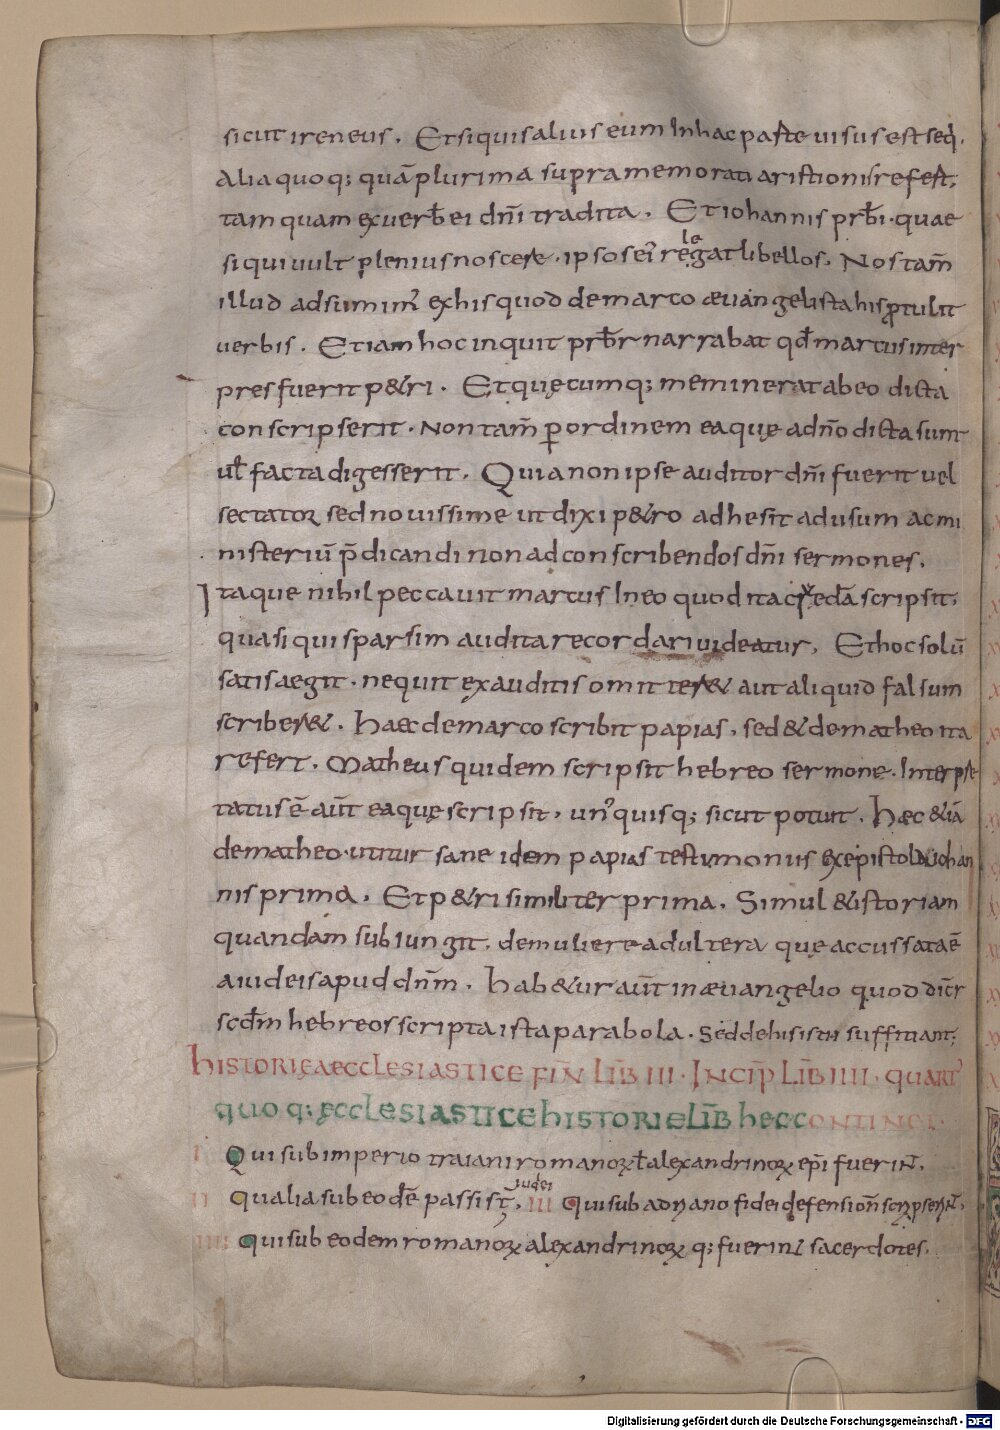 sicut ireneus. Et si quis alius eum In hac parte uisus est seq̄.
Alia quoq; quā plurima supra memorati aristionis refert,
tam quam ex uerb̄ ei dn̄i tradita. Et iohannis prb̄i. quae
si qui uult plenius noscere. ipso sei regat libellos. Nos tam̄
la
illud adsumim' ex his quod de marco æuangelista his protulit
uerbis. Etiam hoc inquit prb̄r narrabat qd̄ marcus inter
pres fuerit p&ri. Et quęcumq; meminerat ab eo dicta
conscripserit. Non tam̄ per ordinem ea quę a dn̄o dicta sunt
ul̄ facta digesserit. Quia non ipse auditor dn̄i fuerit uel
sectator sed nouissime ut dixi p&ro adhesit ad usum ac mi
nisteriū p̄dicandi non ad conscribendos dn̄i sermones.
Itaque nihil peccauit marcus In eo quod ita c&edā scripsit,
quasi qui sparsim audita recordari uideatur, Et hoc solū
satis aegit. ne quit ex auditis omitter& aut aliquid falsum
scriber&. Haec de marco scribit papias, sed & de matheo ita
refert. Matheus quidem scripsit hebreo sermone. Interpre
tatus ē aūt ea quę scripsit, un'quisq; sicut potuit. Hæc & iā
de matheo. utitur sane idem papias testimoniis ex epistola iohan
nis prima. Et p&ri similiter prima. Simul & istoriam
quandam subiungit, de muliere adultera quę accussata ē
a iudeis apud dn̄m. Hab&ur aūt in æuangelio quod dicr̄
scd̄m hebreos scripta ista parabola. Sed de his istis sufficiant;
historię aecclesiastice fin̄ lib̄ III. Incip̄ Lib̄ IIII. quart'
quo q; ęcclesiastice historie lib̄ hec continet
I Qui sub imperio traiani romanoꝝ t̄ alexandrinoꝝ ep̄i fuerint̄.
iudei
II Qualia sub eodē passi st̄, III Qui sub adriano fidei defension̄ scripserint̄,
IIII Qui sub eodem romanoꝝ alexandrinoꝝ q; fuerint sacerdotes.
Digitalisierung gefördert durch die Deutsche Forschungsgemeinschaft - DFG